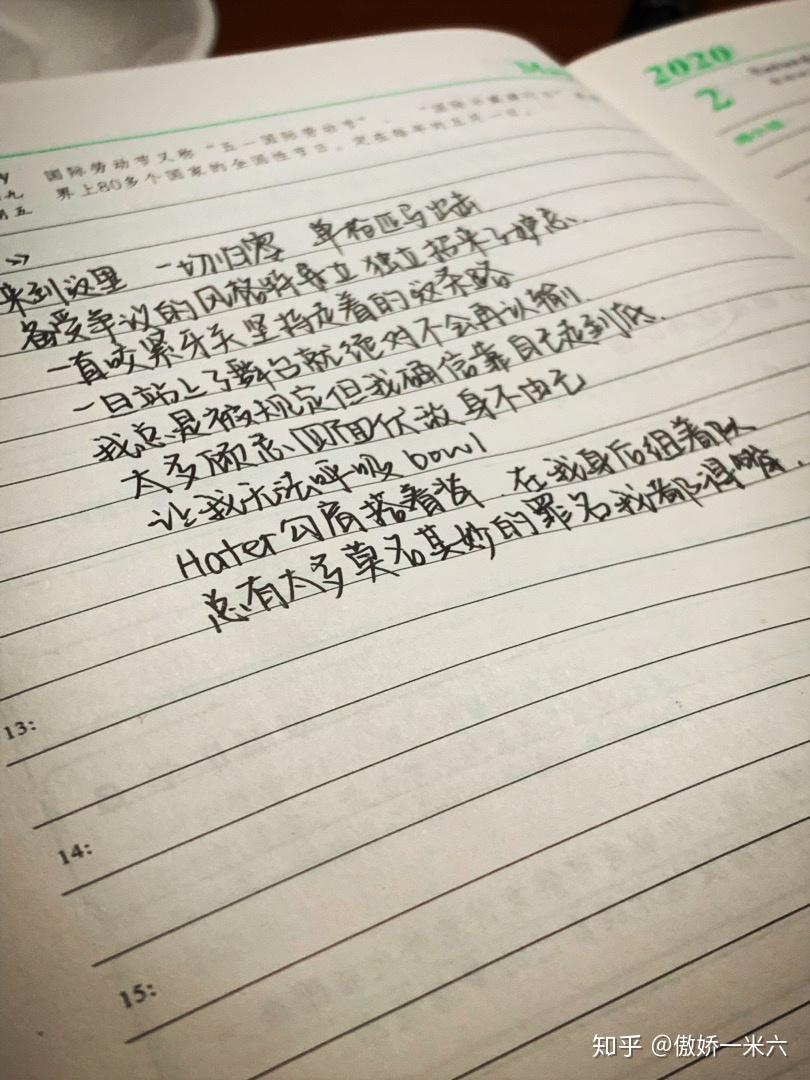 May
2020
2
国际劳动节又称“五一国际劳动节”、“国际示威游行日”
界上80多个国家的全国性节日。定在每年的五月一日。
来到这里 一切归零 单枪匹马出击
备受争议的风格特导立独立招来了妒忌.
一直咬紧牙关坚持走着的这条路
一旦站上了舞台就绝对不会再认输.
我总是被规定但我确信靠自己走到底.
太多顾忌四面伏敌身不由己
让我无法呼吸 bowl
Hater勾肩搭着背 在我身后组着队
总有太多莫名其妙的罪名我都得背.
13:
14:
15:
知乎 @傲娇一米六